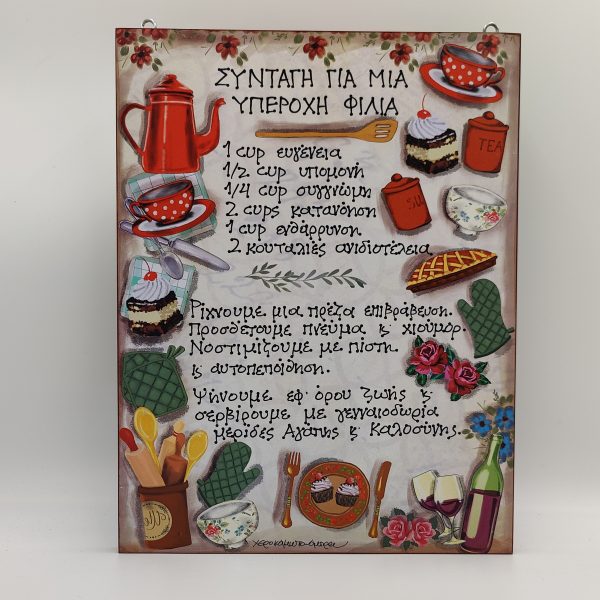 ΣΥΝΤΑΓΗ ΓΙΑ ΜΙΑ
ΥΠΕΡΟΧΗ ΦΙΛΙΑ
1 cup ευγένεια
1/2 cup υπομονή
1/4 cup συγγνώμη
2 cups κατανόηση
1 cup ενθάρρυνση
2 κουταλιές ανιδιοτέλεια
TEA
SU
Ρίχνουμε μια πρέζα επιβράβευση.
Προσθέτουμε πνεύμα & χιούμορ.
Νοστιμίζουμε με πίστη
& αυτοπεποίθηση.
Ψήνουμε εφ' όρου ζωής &
σερβίρουμε με γενναιοδωρία
μερίδες Αγάπης & Καλοσύνης.